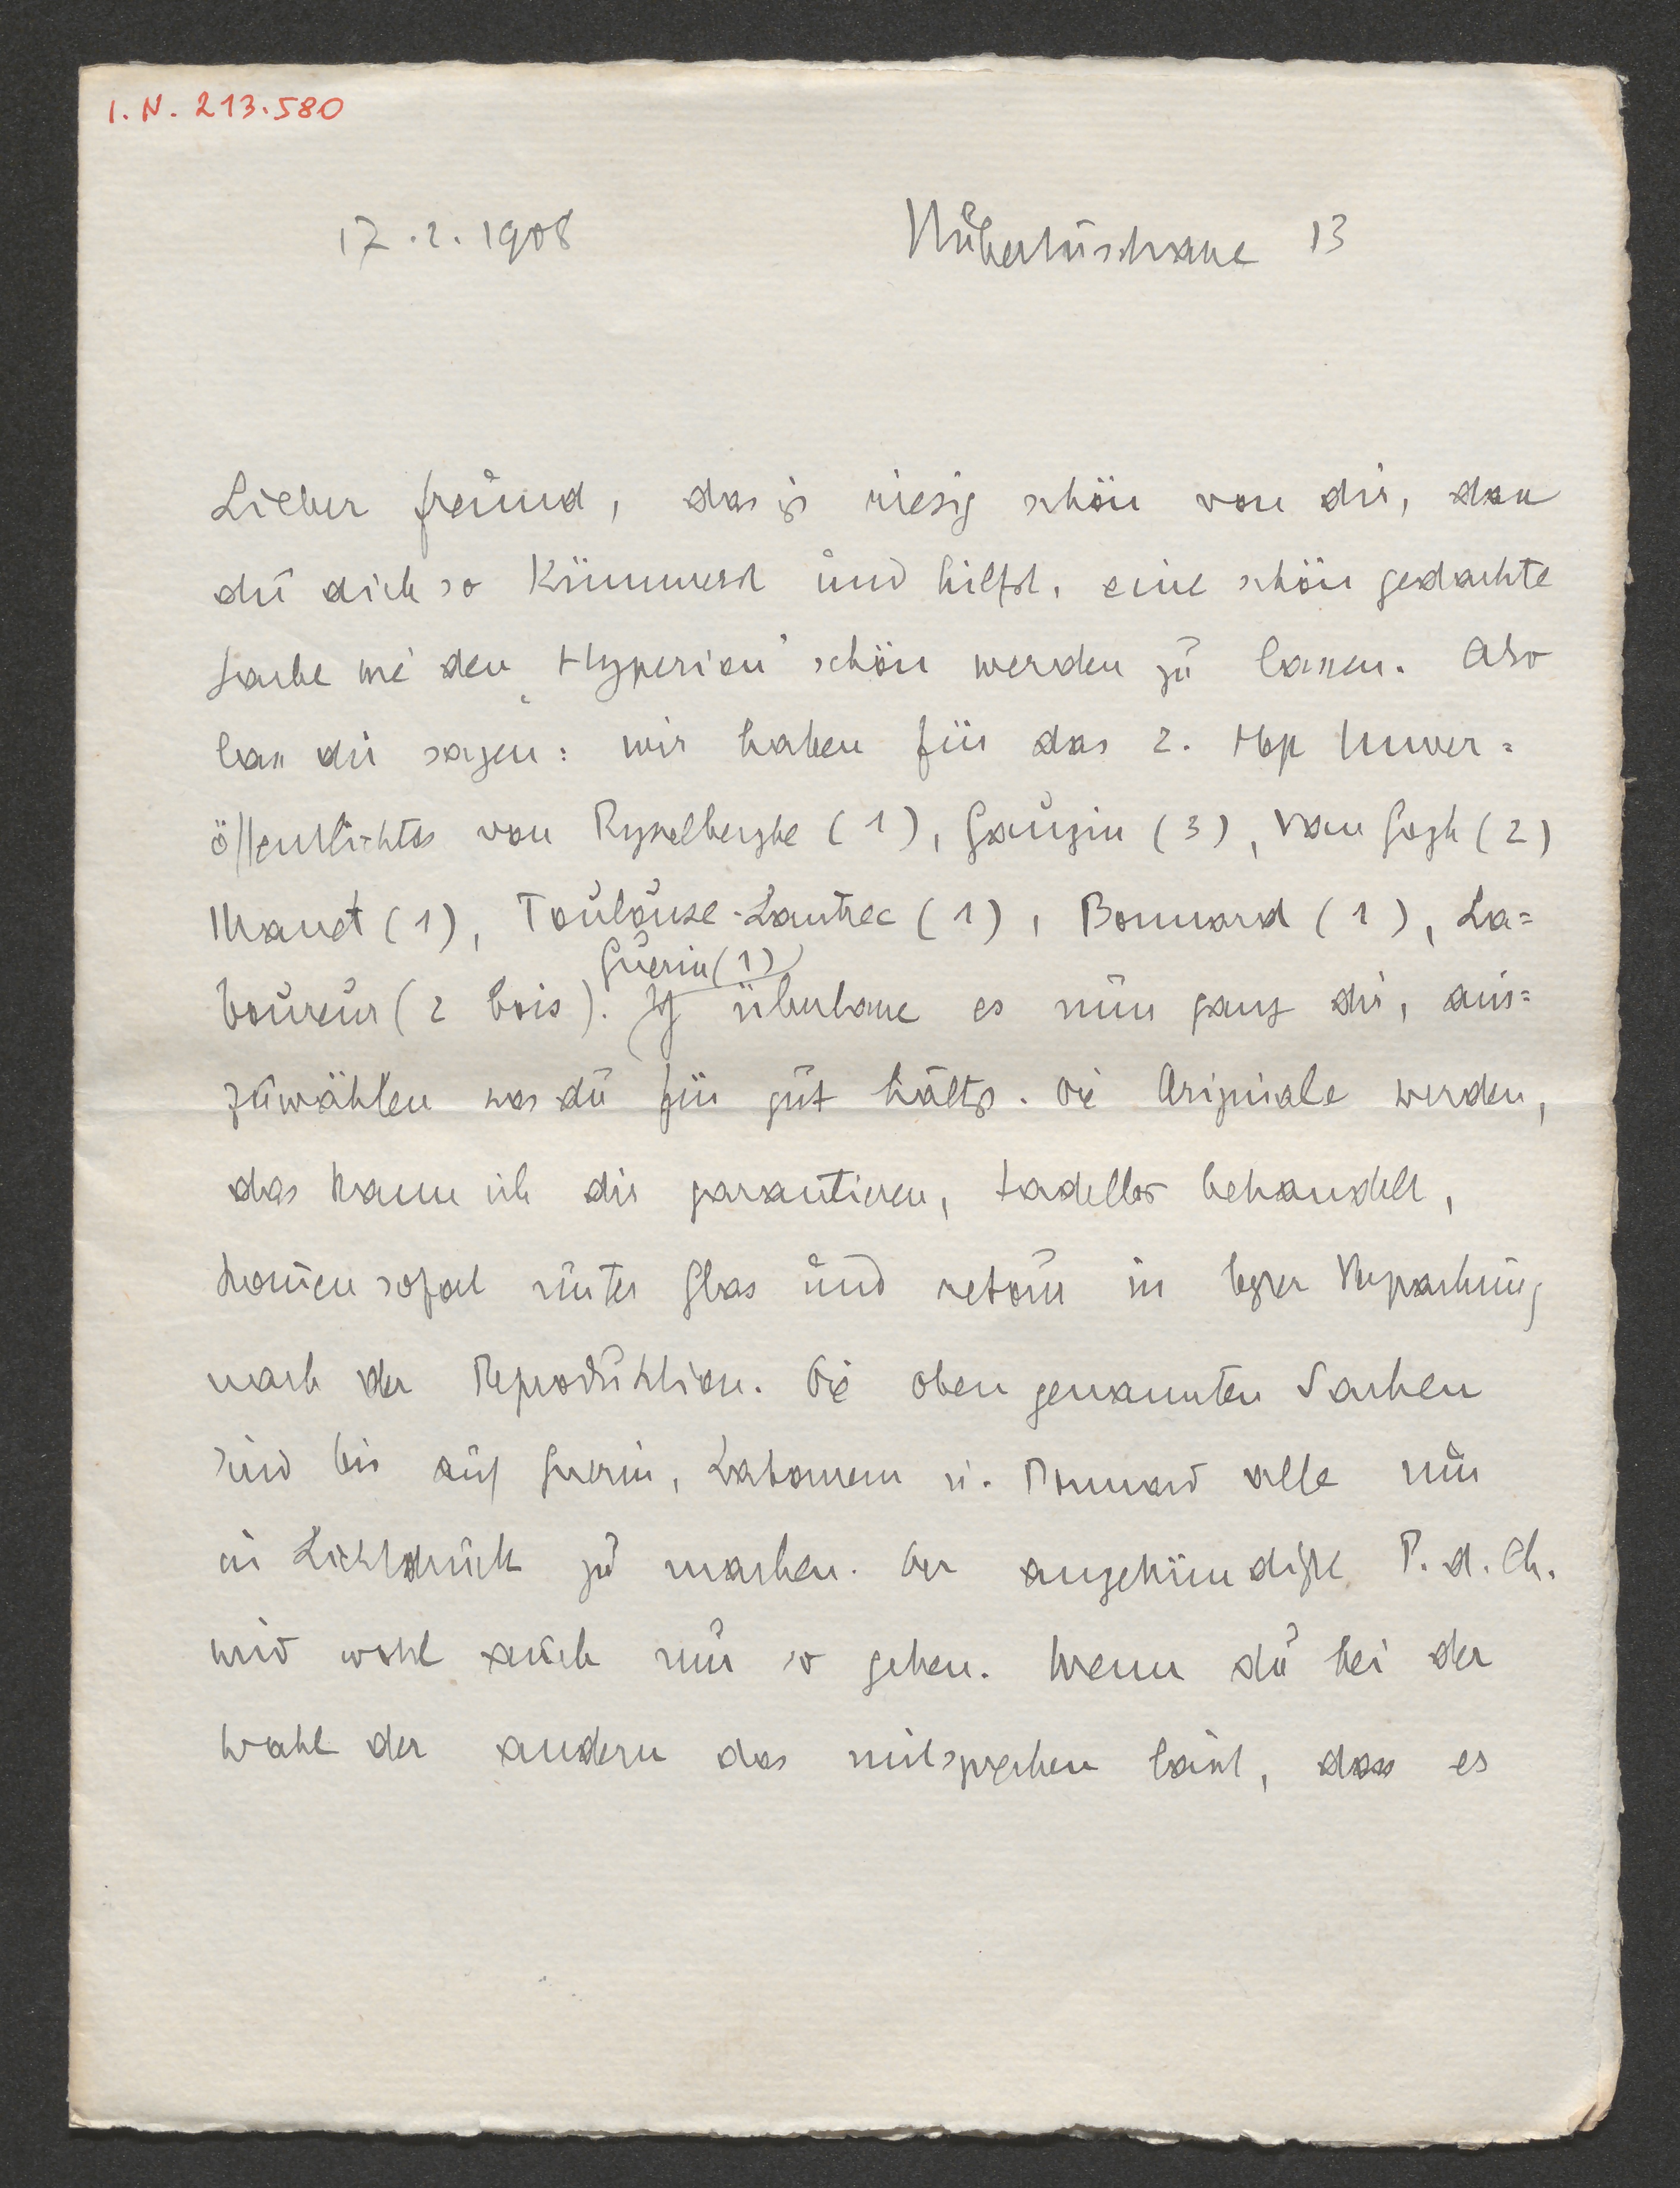 I. N. 213.580
17.2.1908 Hubertusstrasse 13
Lieber freund, das ist riesig schön von dir, dass
du dich so kümmerst und hilfst, eine schön gedachte
Sache wie den „Hyperion“ schön werden zu lassen. Also
lass dir sagen: wir haben für das 2. Hyp Unver=
öffentlichtes von Rysselberghe (1), Gaugin (3), Van Gogh (2)
Manet (1), Toulouse-Lautrec (1), Bonnard (1), La=
boureur (2 bois). Guerin (1)
Ich überlasse es nun ganz dir, aus=
zuwählen was du für gut hältst. Die Originale werden,
das kann ich dir garantieren, tadellos behandelt,
kommen sofort unter Glas und retour in bester Verpackung
nach der Reproduktion. Die oben genannten Sachen
sind bis auf Guerin, Laboureur u. Bonnard alle nur
in Lichtdruck zu machen. Der angekündigte P. d. Ch.
wird wohl auch nur so gehen. Wenn du bei der
Wahl der andern das mitsprechen lässt, dass es